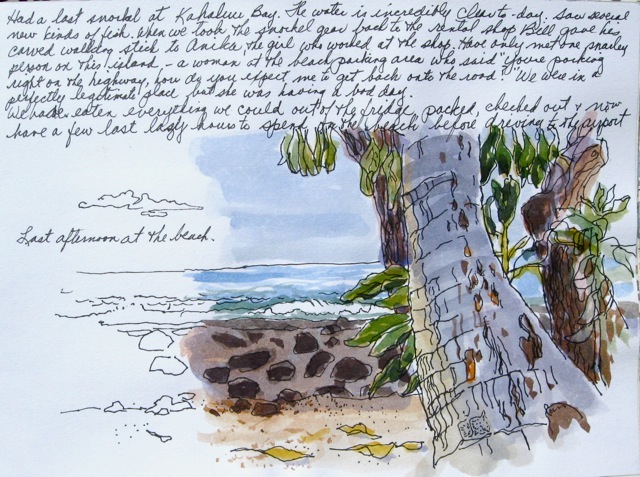 Had a last snorkel at Kahaluu Bay. The water is incredibly clear to-day. Saw several
new kinds of fish. When we took the snorkel gear back to the rental shop Bill gave his
carved walking stick to Anika the girl who worked at the shop. Have only met one snarley
person on this island, - a woman at the beach parking area who said "You're parking
right on the highway, how do you expect me to get back onto the road?" We were in a
perfectly legitimate place but she was having a bad day.
We have eaten everything we could out of the fridge, packed, checked out & now
have a few last lazy hours to spend at the beach before driving to the airport
Last afternoon at the beach.